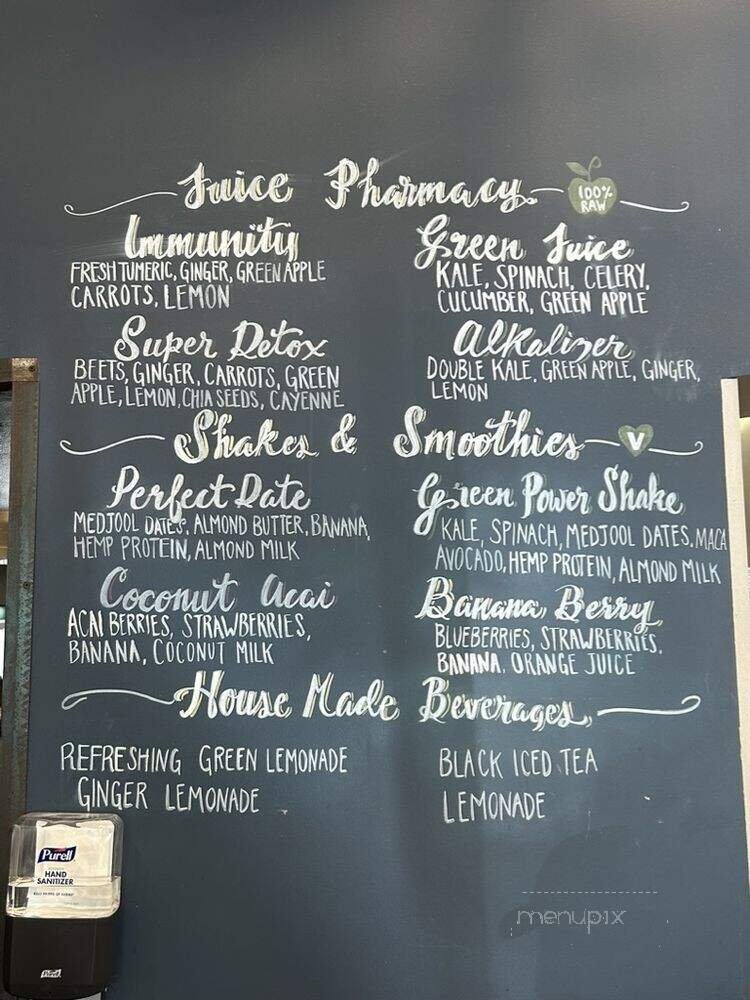 Juice Pharmacy
100%
RAW
Immunity
FRESH TUMERIC, GINGER, GREEN APPLE
CARROTS, LEMON
Green Juice
KALE, SPINACH, CELERY,
CUCUMBER, GREEN APPLE
Super Detox
BEETS, GINGER, CARROTS, GREEN
APPLE, LEMON, CHIA SEEDS, CAYENNE
Alkalizer
DOUBLE KALE, GREEN APPLE, GINGER,
LEMON
Shakes & Smoothies
V
Perfect Date
MEDJOOL DATES, ALMOND BUTTER, BANANA,
HEMP PROTEIN, ALMOND MILK
Green Power Shake
KALE, SPINACH, MEDJOOL DATES, MACA
AVOCADO, HEMP PROTEIN, ALMOND MILK
Coconut Acai
ACAI BERRIES, STRAWBERRIES,
BANANA, COCONUT MILK
Banana Berry
BLUEBERRIES, STRAWBERRIES,
BANANA, ORANGE JUICE
House Made Beverages
REFRESHING GREEN LEMONADE
GINGER LEMONADE
BLACK ICED TEA
LEMONADE
Purell
HAND
SANITIZER
Purell
menupix